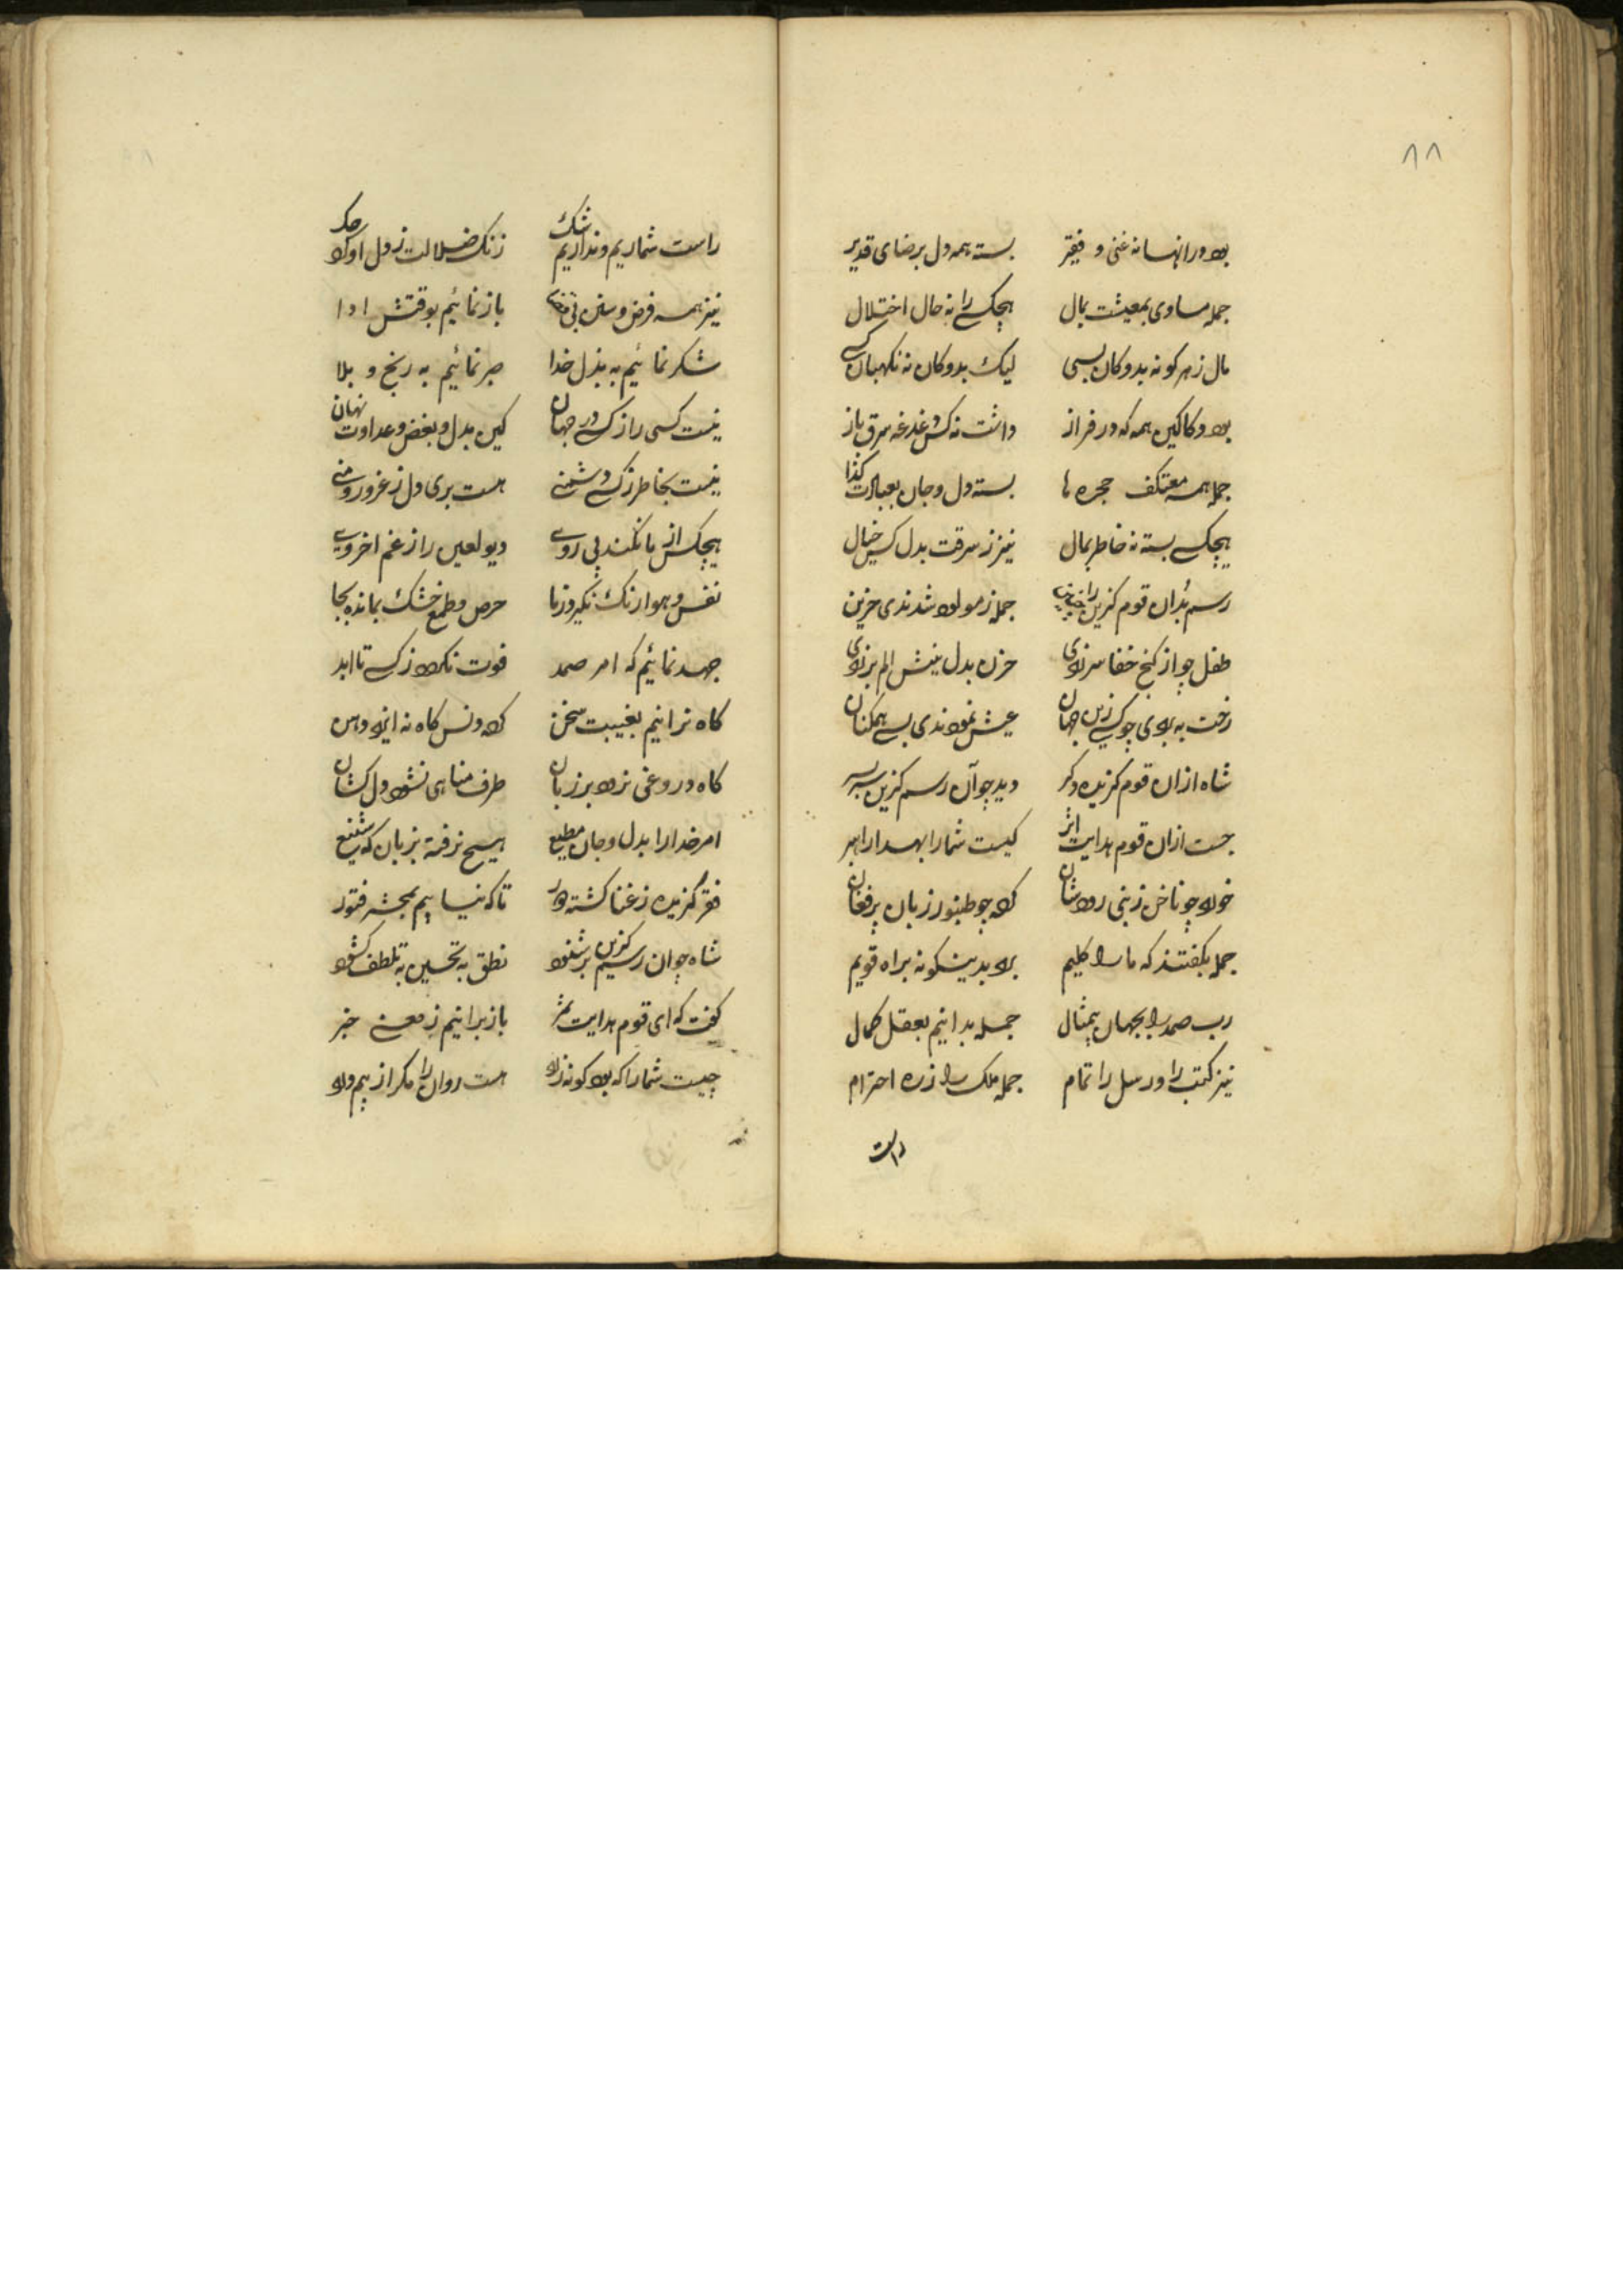 ۸۸
بود در انها نه غنی و فقیر بسته همه دل برضای قدیر
جمله مساوی بمعیشت بمال هیچکسی را نه حال اختلال
مال ز هر کونه بدوکان بسی لیک بدوکان نه نکهبان کسی
بود دکاکین همه که در فراز داشت نه کس غدغه سرق باز
جمله همه معتکف حجره ها بسته دل و جان بعبادت کذا
هیچکسی بسته نه خاطر بمال نیز ز سرقت بدل کس خیال
رسم بُد ان قوم کزین را جمله ز مولود شدندی حزین
طفل چو از کنج خفا سر زدی حزن بدل نیش الم بر زدی
رخت به بردی چو کسی زین جهان عیش نمودندی بسی همکنان
شاه ازان قوم کزیده دکر دید چو آن رسم کزین سر بسر
جست ازان قوم هدایت اثر کیست شما را بهدا راهبر
خورد چو ناخن زنی رودشان کرد چو طنبور زبان پر فغان
جمله بکفتند که ما را کلیم برد بدینکونه براه قویم
رب صمد را بجهان بیمثال جمله بدانیم بعقل کمال
نیز کتب را و رسل را تمام جمله ملک را ز ره احترام
راست
راست شماریم و نداریم شک زنک ضلالت ز دل او کرد حک
نیز همه فرض و سنن بی باز نمائیم بوقتش ادا
شکر نمائیم به بذل خدا صبر نمائیم به رنج و بلا
نیست کسی را ز کسی در جهان کین بدل و بغض و عداوت نهان
نیست بخاطر ز کسی دشمنی هست بری دل ز غرور و منی
هیچکس از ما نکند پی روی دیو لعین را ز غم اخروی
نفس و هوا رنک نکیرد ز ما حرص و طمع خشک بمانده بجا
جهد نمائیم که امر صمد فوت نکردد ز کسی تا ابد
کاه نرانیم بغیبت سخن
کاه دروغی نرود بر زبان طرف مناهی نشود دل کشان
امر خدا را بدل و جان مطیع هیچ نرفته بزبان که شنیع
فقر کزیده ز غنا کشته دور تا که نیابیم بمحشر فتور
شاه چو ان رسم کزین بر شنود نطق به تحسین به تلطف کشود
کفت که ای قوم هدایت ثمر باز برانیم ز معنی خبر
چیست شما را که بود کونه زرد هست روان را مکر از بیم درد